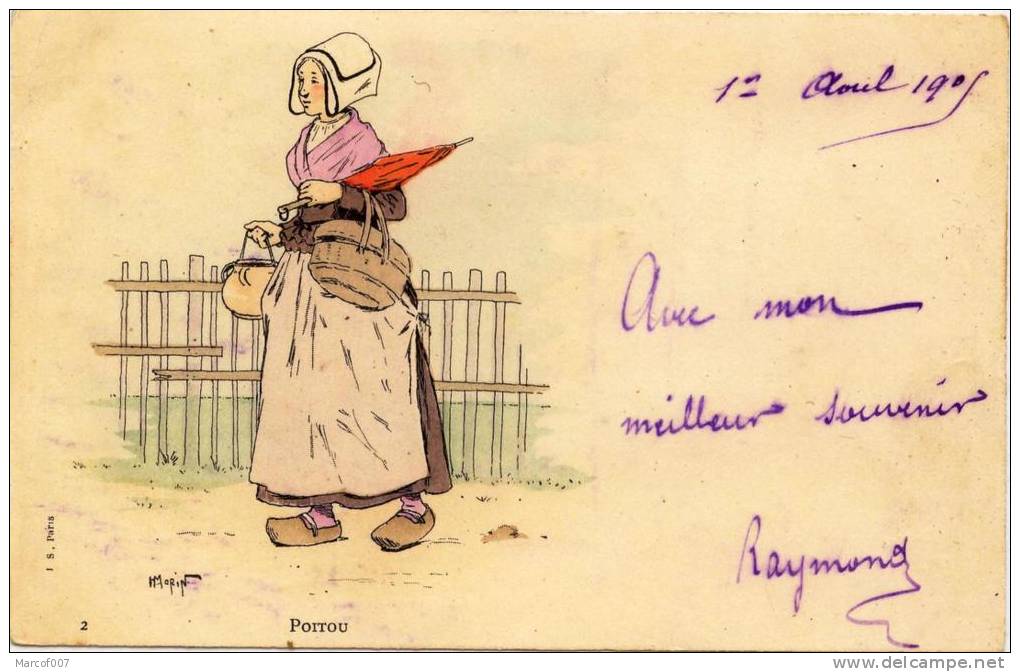 1er Avril 1905
Avec mon
meilleur souvenir
Raymond
I S, Paris
HMORIN
2
POITOU
Marcof007
www.delcampe.net